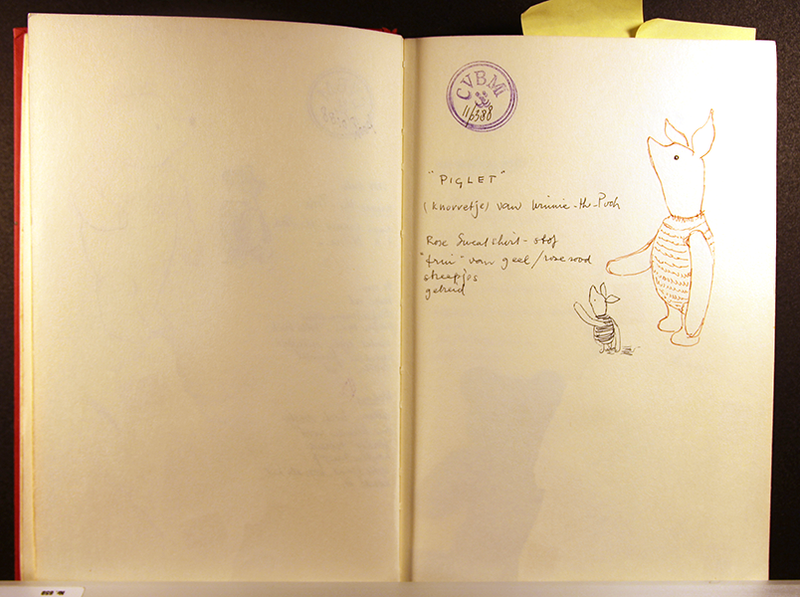 CVBM
11/6388
"PIGLET"
(Knorretje) van Winnie-th-Pooh
Rose Sweatshirt-stof
"trui" van geel/roserood
streepjes
gebreid